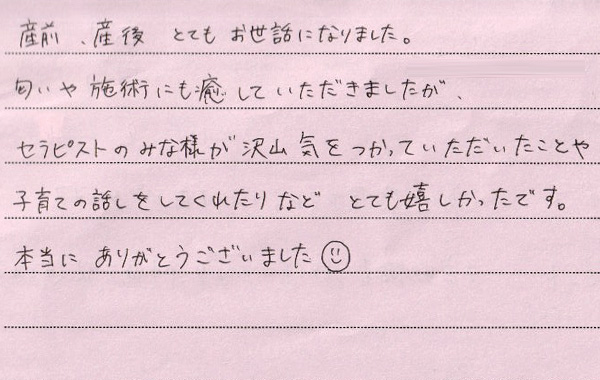 産前、産後 とても お世話になりました。
匂いや 施術にも癒していただきましたが、
セラピストの みな様が 沢山 気をつかっていただいたことや
子育ての話しをしてくれたりなど とても嬉しかったです。
本当に ありがとうございました